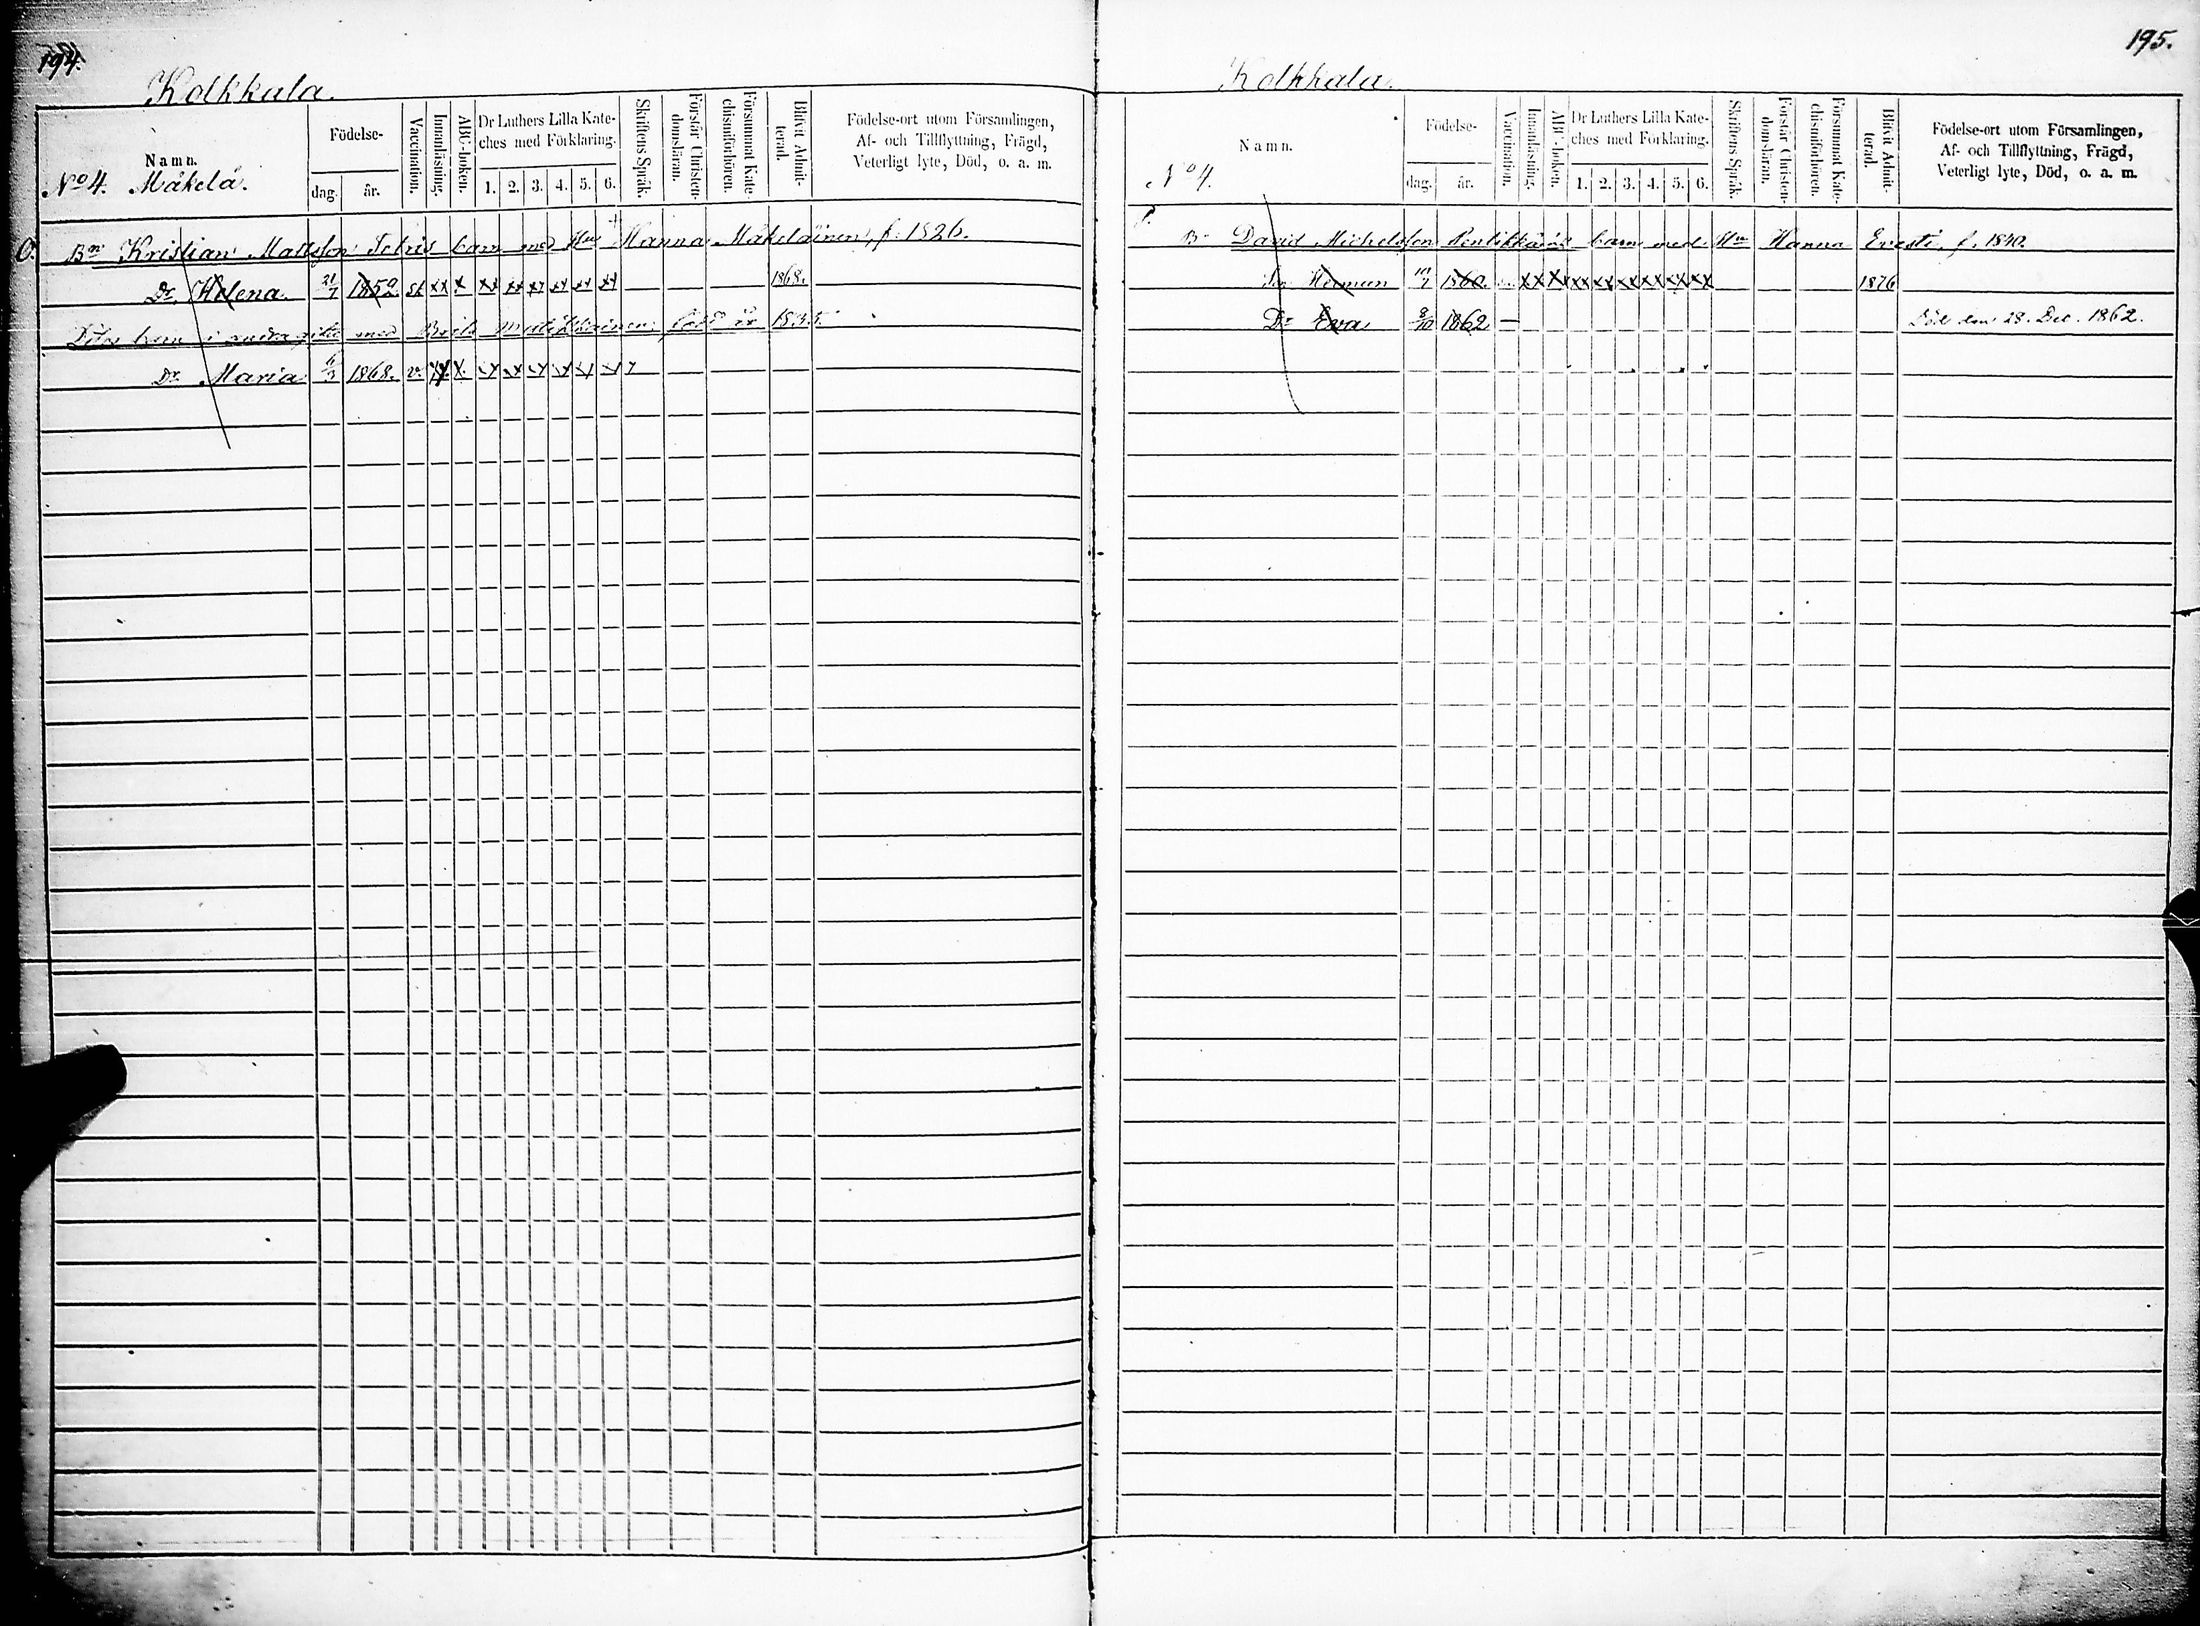 194.
Kolkkala.
Namn.
No 4. Mäkelä.
Födelse-
dag. år.
Vaccination.
Innanläsning.
ABC-boken.
Dr Luthers Lilla Kate-
ches med Förklaring.
1. 2. 3. 4. 5. 6.
Skriftens Språk.
Förstår Christen-
domsläran.
Försummat Kate-
chismiförhören.
Blifvit Admit-
terad.
Födelse-ort utom Församlingen,
Af- och Tillflyttning, Frägd,
Veterligt lyte, Död, o. a. m.
O. Bn Kristian Mattsson barn med Hu Hanna Mäkeläinen, f. 1826.
Dr Helena. 21/7 1852 xx x xx xx xx xx xx xx 1868.
barn i andra gifte med född år 1835.
Dr Maria 6/3 1868. v. x.
195.
Kolkkala.
Namn.
No 4.
Födelse-
dag. år.
Vaccination.
Innanläsning.
ABC-boken.
Dr Luthers Lilla Kate-
ches med Förklaring.
1. 2. 3. 4. 5. 6.
Skriftens Språk.
Förstår Christen-
domsläran.
Försummat Kate-
chismiförhören.
Blifvit Admit-
terad.
Födelse-ort utom Församlingen,
Af- och Tillflyttning, Frägd,
Veterligt lyte, Död, o. a. m.
Bn David Michelsson barn med Hu Hanna Evesti, f. 1840.
Son Herman 1860. xx xx xx xx xx xx xx xx 1876
Dr Eva 8/10 1862 — Död den 28. Dec. 1862.